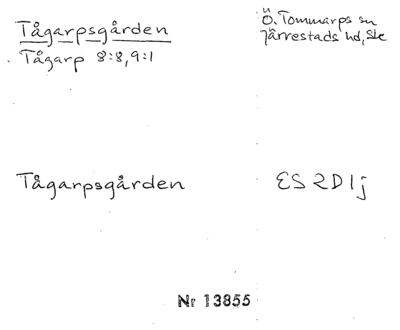 Tågarpsgården
Tågarp 8:8, 9:1
Ö. Tommarps sn
Järrestads hd, Sk
Tågarpsgården
ES 2D1j
Nr 13855